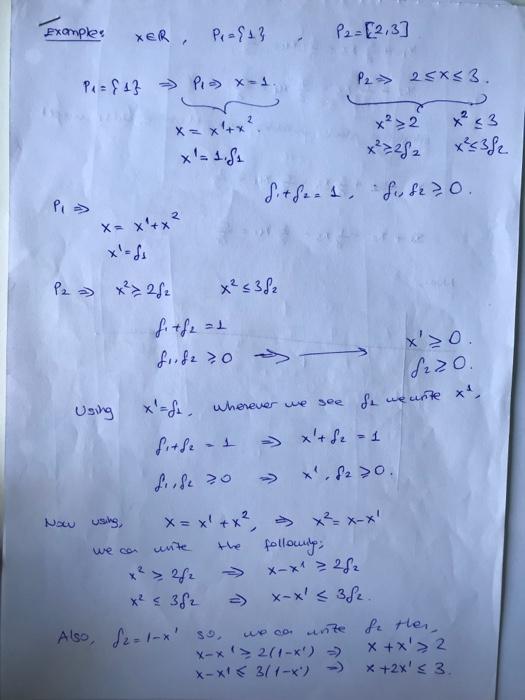 Examples x∈R, P₁={1} , P₂=[2,3]
P₁={1} ⇒ P₁⇒ x=1. P₂⇒ 2≤x≤3.
x = x¹+x². x²≥2 x²≤3
x¹=1.f₁ x²≥2f₂ x²≤3f₂
f₁+f₂=1, f₁,f₂≥0.
P₁ ⇒
x = x¹+x²
x¹=f₁
P₂ ⇒ x²≥2f₂ x²≤3f₂
f₁+f₂=1
f₁,f₂≥0 ⇒ → x¹≥0.
f₂≥0.
Using x¹=f₁, wherever we see f₁ we write x¹,
f₁+f₂=1 ⇒ x¹+f₂=1
f₁,f₂≥0 ⇒ x¹,f₂≥0.
Now using, x=x¹+x², ⇒ x²=x-x¹
we can write the following;
x²≥2f₂ ⇒ x-x¹≥2f₂
x²≤3f₂ ⇒ x-x¹≤3f₂.
Also, f₂=1-x¹ so, we can write f₂ then,
x-x¹≥2(1-x¹) ⇒ x+x¹≥2
x-x¹≤3(1-x¹) ⇒ x+2x¹≤3.